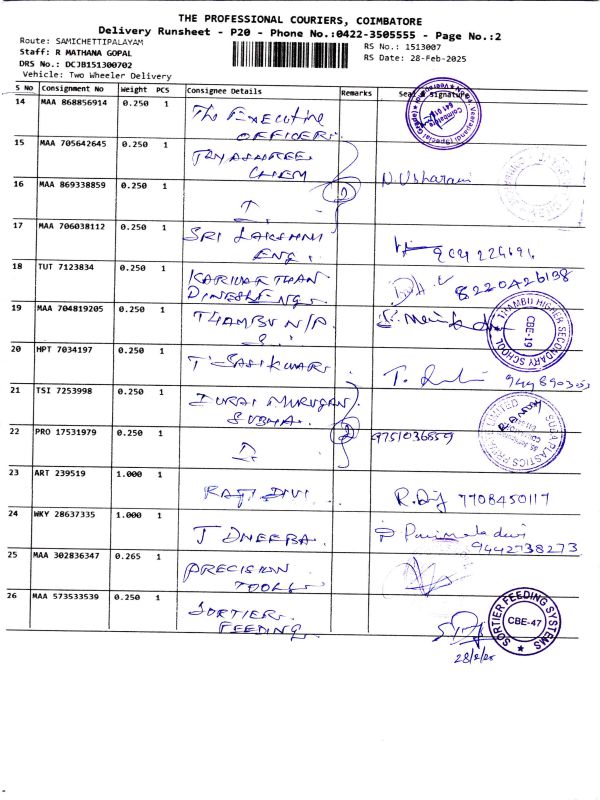 THE PROFESSIONAL COURIERS, COIMBATORE
Delivery Runsheet - P20 - Phone No.:0422-3505555 - Page No.:2
Route: SAMICHETTIPALAYAM
RS No.: 1513007
Staff: R MATHANA GOPAL
RS Date: 28-Feb-2025
DRS No.: DCJB151300702
Vehicle: Two Wheeler Delivery
S No Consignment No Weight PCS Consignee Details Remarks Seal & Signature
14 MAA 868856914 0.250 1 The EXECUTIVE
OFFICER.
15 MAA 705642645 0.250 1
CHEM
16 MAA 869338859 0.250 1 2 N. Usharani
17 MAA 706038112 0.250 1 SRI LAKSHMI
ENG.
18 TUT 7123834 0.250 1 KARIVARTHAN
8220426138
19 MAA 704819205 0.250 1 THAMBU N/P
THAMBU HIGHER SECONDARY SCHOOL
CBE-19
20 HPT 7034197 0.250 1 T. SASIKUMAR
21 TSI 7253998 0.250 1 DURAI MURUGAN.
SUBHA.
22 PRO 17531979 0.250 1 2 9751036859
23 ART 239519 1.000 1 RAJI DIVI 7708450117
24 WKY 28637335 1.000 1
9442738273
25 MAA 302836347 0.265 1 PRECISION
TOOLS
26 MAA 573533539 0.250 1 SORTIER
FEEDING
SORTIER FEEDING SYSTEMS
CBE-47
28/2/25